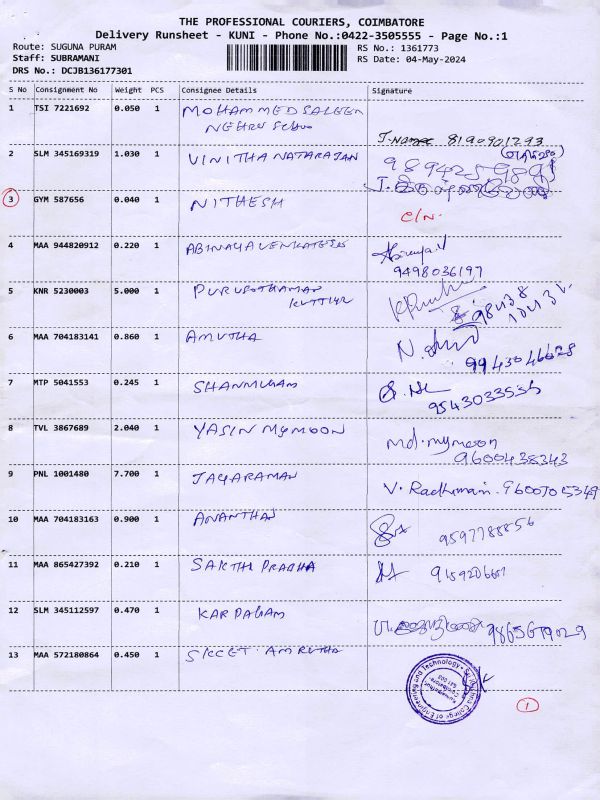 THE PROFESSIONAL COURIERS, COIMBATORE
Delivery Runsheet - KUNI - Phone No.:0422-3505555 - Page No.:1
Route: SUGUNA PURAM RS No.: 1361773
Staff: SUBRAMANI RS Date: 04-May-2024
DRS No.: DCJB136177301
S No Consignment No Weight PCS Consignee Details Signature
1 TSI 7221692 0.050 1 MOHAMMED SALEEN
NEHRU
8190901293
2 SLM 345169319 1.030 1 VINITHA NATARAJAN
3 GYM 587656 0.040 1 NITHESH
C/N.
4 MAA 944820912 0.220 1 ABINAYA VENKATESH
9498036197
5 KNR 5230003 5.000 1 PURUSOTHAMAN
6 MAA 704183141 0.860 1 AMUTHA
7 MTP 5041553 0.245 1 SHANMUGAM
8 TVL 3867689 2.040 1 YASIN MYMOON
md. mymoon
9600438343
9 PNL 1001480 7.700 1 JAYARAMAN V. Radhimani.
10 MAA 704183163 0.900 1 ANANTHAN 9597788856
11 MAA 865427392 0.210 1 SAKTHI PRABHA
12 SLM 345112597 0.470 1 KARPAGAM
13 MAA 572180864 0.450 1 SKCET. AMRUTHA
1